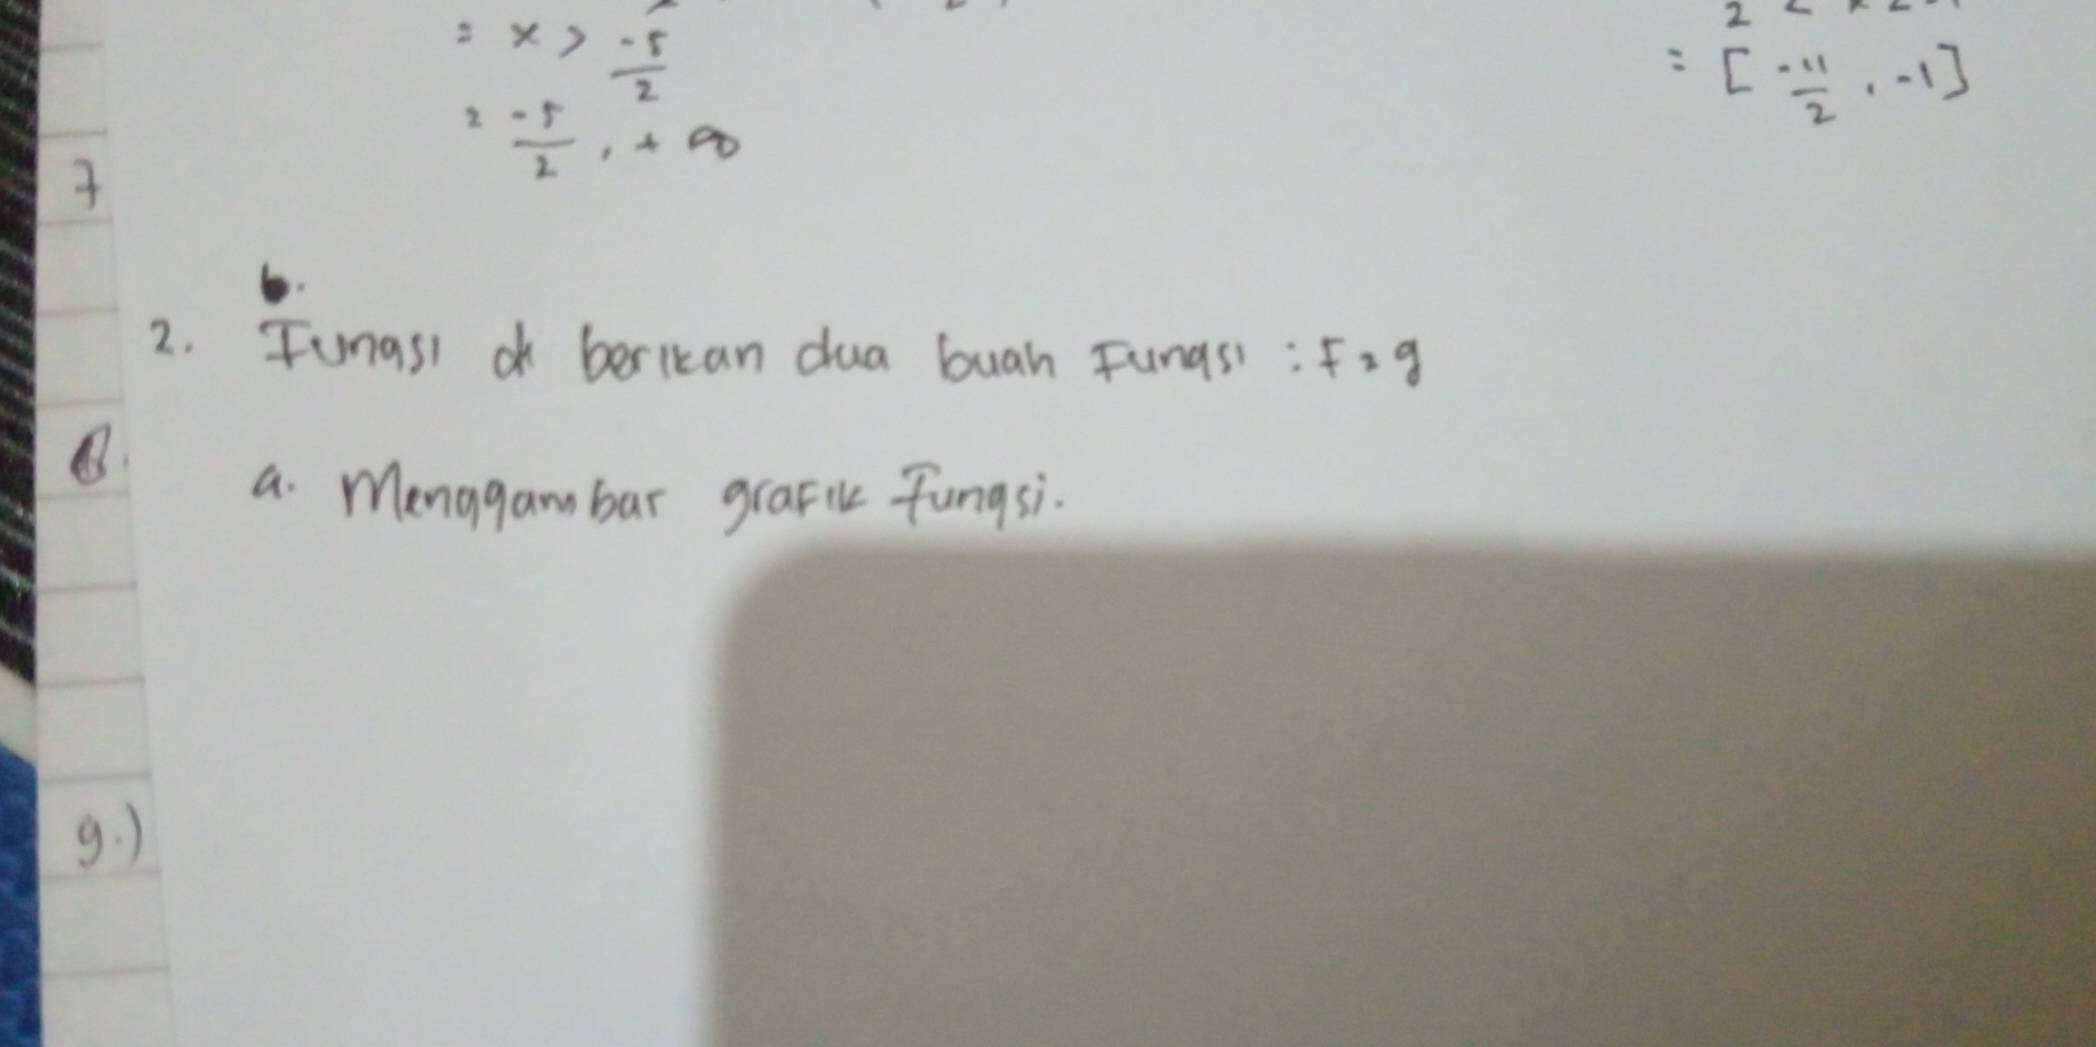 = x > -5/2
= -5/2 , + ∞
= [ -11/2 , -1 ]
7
b.
2. Fungsi di berikan dua buah Fungsi : F = g
a. Menggambar grafik Fungsi.
9.)